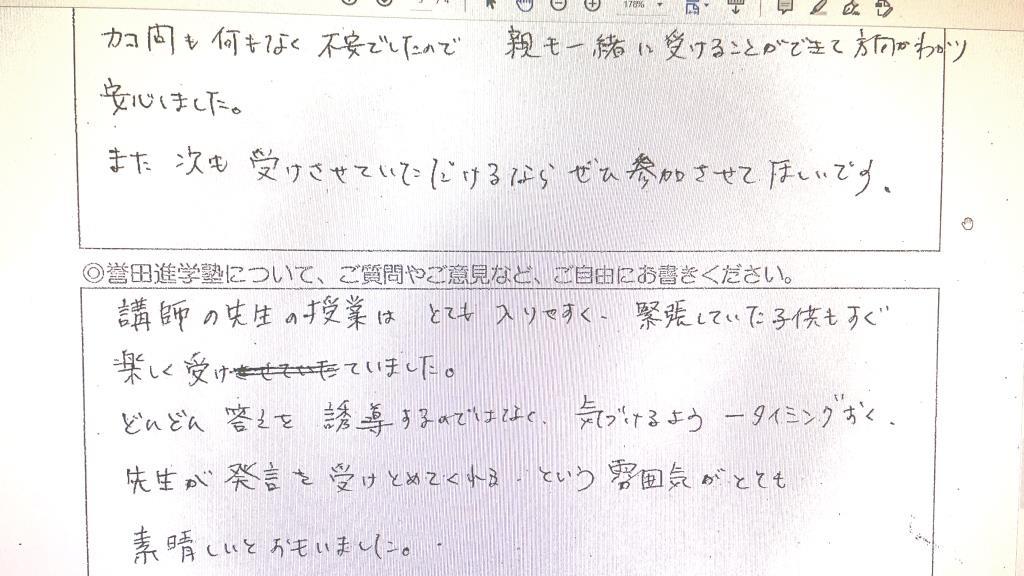 178%
カコ問も何もなく不安でしたので 親も一緒に受けることができて方向がわかり
安心しました。
また次も受けさせていただけるならぜひ参加させてほしいです。
◎誉田進学塾について、ご質問やご意見など、ご自由にお書きください。
講師の先生の授業は とても入りやすく、緊張していた子供もすぐ
楽しく受けさせていたていました。
どんどん答えを誘導するのではなく、気づけるよう一タイミングおく、
先生が発言を受けとめてくれる、という雰囲気がとても
素晴しいとおもいました。